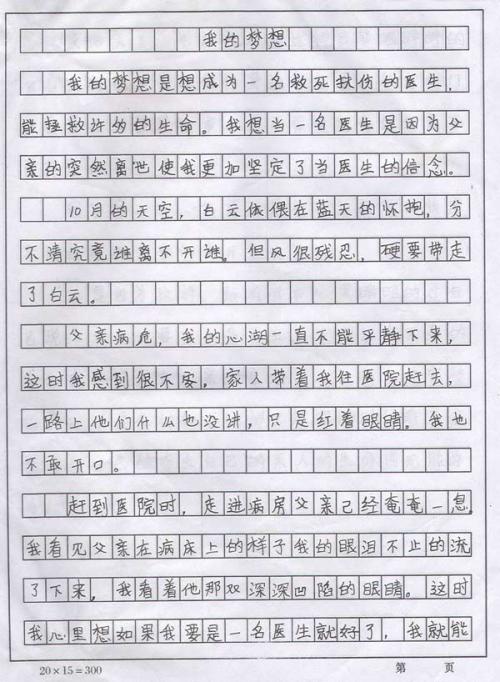 我的梦想
我的梦想是想成为一名救死扶伤的医生，
能拯救许多的生命。我想当一名医生是因为父
亲的突然离世使我更加坚定了当医生的信念。
10月的天空，白云依偎在蓝天的怀抱，分
不清究竟谁离不开谁。但风很残忍，硬要带走
了白云。
父亲病危，我的心湖一直不能平静下来，
这时我感到很不安。家人带着我往医院赶去，
一路上他们什么也没讲，只是红着眼睛。我也
不敢开口。
赶到医院时，走进病房父亲已经奄奄一息。
我看见父亲在病床上的样子我的眼泪不止的流
了下来，我看着他那双深深凹陷的眼睛。这时
我心里想如果我要是一名医生就好了，我就能
20×15=300
第 页